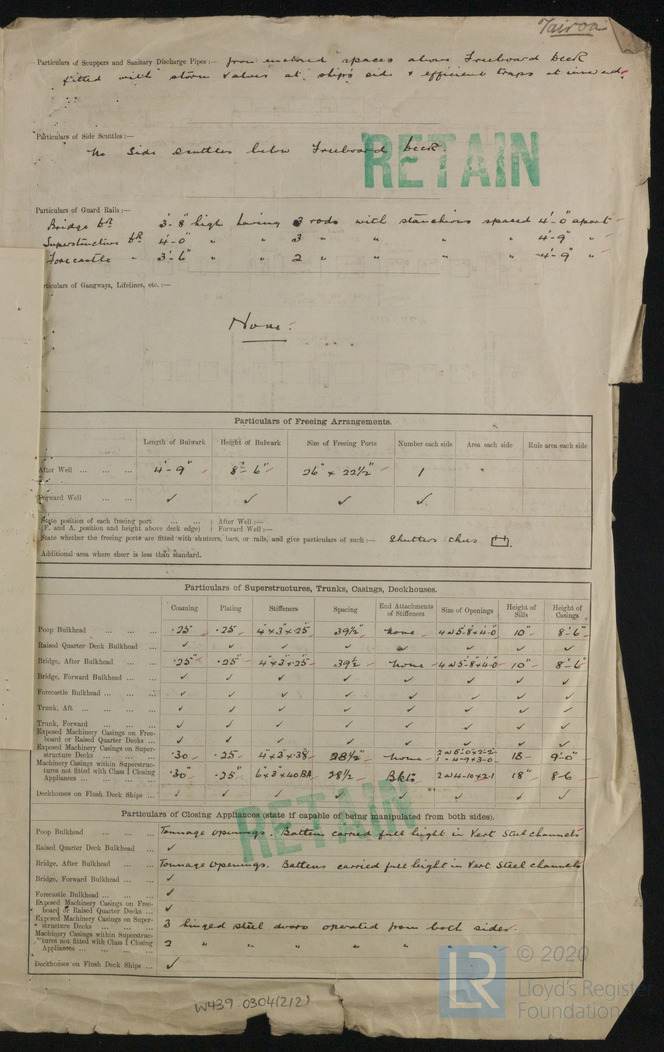 Tairoa
Particulars of Scuppers and Sanitary Discharge Pipes:— from enclosed spaces above Freeboard Deck
fitted with storm valves at ship's side & efficient traps at inner ends
Particulars of Side Scuttles:—
No Side scuttles below Freeboard Deck.
RETAIN
Particulars of Guard Rails:—
Bridge Dk 3'-8" high having 3 rods with stanchions spaced 4'-0" apart
Superstructure Dk 4'-0" " " 3 " " " " 4'-9" "
Forecastle " 3'-6" " " 2 " " " " 4'-9" "
rticulars of Gangways, Lifelines, etc.:—
None.
Particulars of Freeing Arrangements.
Length of Bulwark Height of Bulwark Size of Freeing Ports Number each side Area each side Rule area each side
After Well ... ... ... 4'-9" 8'-6" 26" x 22½" 1
Forward Well ... ... ✓ ✓ ✓ ✓
State position of each freeing port ... ... ... ) After Well:—
(F. and A. position and height above deck edge) ) Forward Well:—
State whether the freeing ports are fitted with shutters, bars, or rails, and give particulars of such:— Shutters thus
Additional area where sheer is less than standard.
Particulars of Superstructures, Trunks, Casings, Deckhouses.
Coaming Plating Stiffeners Spacing End Attachments of Stiffeners Size of Openings Height of Sills Height of Casings
Poop Bulkhead ... ... ... .25 .25" 4"x3"x.25 39½" none 4 @ 5-8x4-0 10" 8'-6"
Raised Quarter Deck Bulkhead ... ✓ ✓ ✓ ✓ ✓ ✓ ✓ ✓
Bridge, After Bulkhead ... ... .25" .25" 4"x3"x.25 39½ none 4 @ 5-8x4-0 10" 8'-6"
Bridge, Forward Bulkhead ... ... ✓ ✓ ✓ ✓ ✓ ✓ ✓ ✓
Forecastle Bulkhead ... ... ... ✓ ✓ ✓ ✓ ✓ ✓ ✓ ✓
Trunk, Aft ... ... ... ... ✓ ✓ ✓ ✓ ✓ ✓ ✓ ✓
Trunk, Forward ... ... ... ✓ ✓ ✓ ✓ ✓ ✓ ✓ ✓
Exposed Machinery Casings on Free-
board or Raised Quarter Decks ... ✓ ✓ ✓ ✓ ✓ ✓ ✓ ✓
Exposed Machinery Casings on Super-
structure Decks ... ... ... .30 .25 4"x3"x.38 28½" none 18 9'-0"
Machinery Casings within Superstruc-
tures not fitted with Class I Closing
Appliances ... ... ... .30" .25" 6x3x.40 BA 28½ Bkts 2 @ 4-10x2-1 18" 8-6
Deckhouses on Flush Deck Ships ... ✓ ✓ ✓ ✓ ✓ ✓ ✓ ✓
RETAIN
Particulars of Closing Appliances (state if capable of being manipulated from both sides).
Poop Bulkhead ... ... ... Tonnage Openings. Battens carried full height in Vert Steel channels
Raised Quarter Deck Bulkhead ... ✓
Bridge, After Bulkhead ... ... Tonnage Openings. Battens carried full height in Vert Steel channels
Bridge, Forward Bulkhead ... ... ✓
Forecastle Bulkhead ... ... ... ✓
Exposed Machinery Casings on Free-
board or Raised Quarter Decks ... ✓
Exposed Machinery Casings on Super-
structure Decks ... ... ... 3 hinged steel doors operated from both sides.
Machinery Casings within Superstruc-
tures not fitted with Class I Closing
Appliances ... ... ... 2 " " " " " " "
Deckhouses on Flush Deck Ships ... ✓
W439 0304 (2/2)
LR
© 2020
Lloyd's Register
Foundation